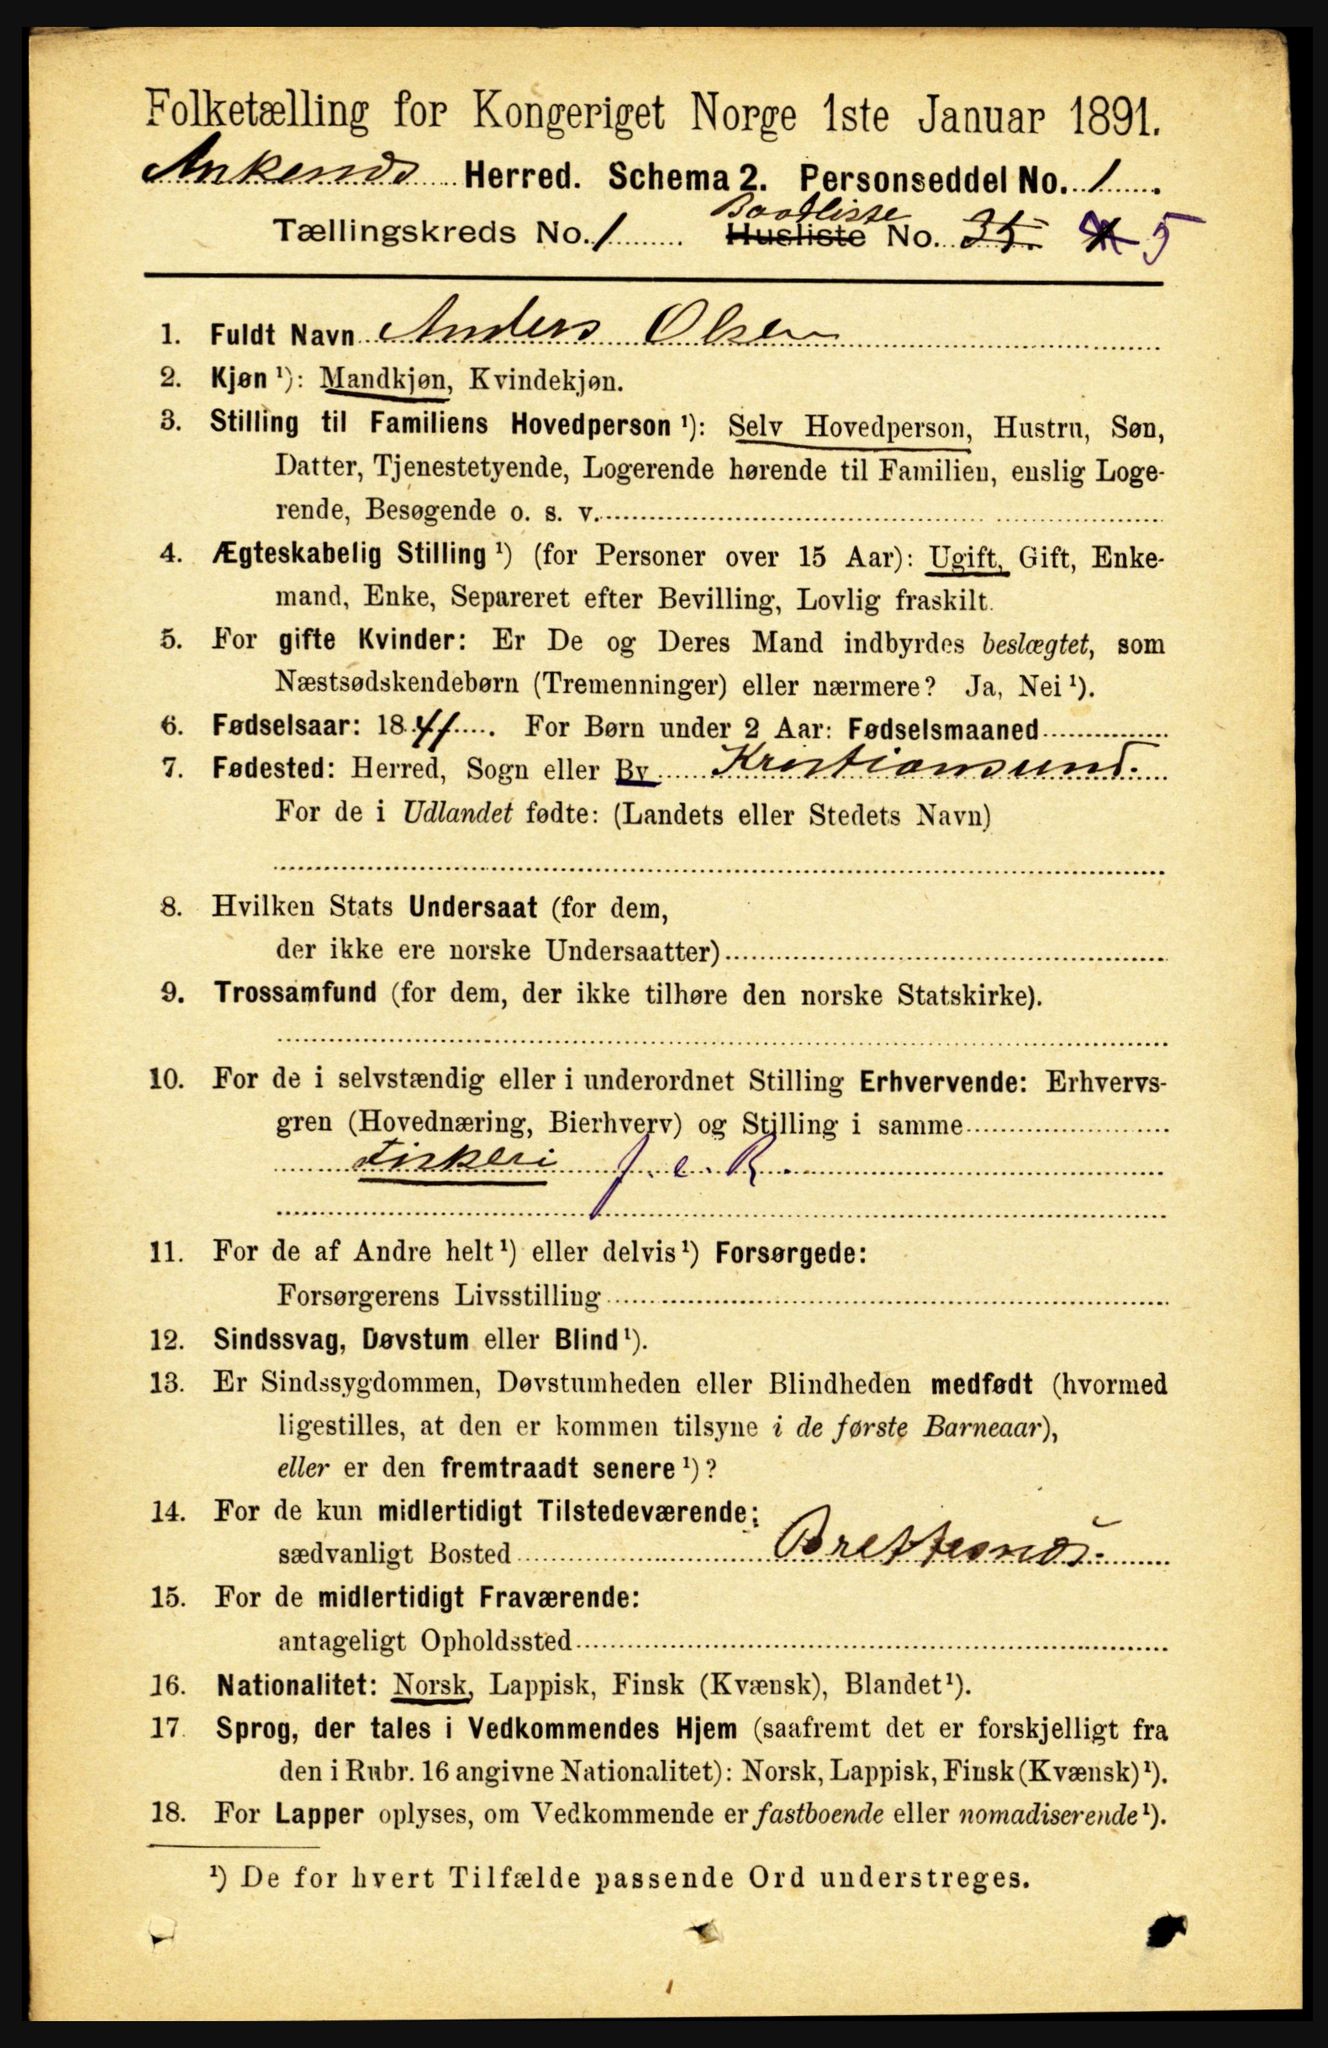 Folketælling for Kongeriget Norge 1ste Januar 1891.
Ankenes Herred. Schema 2. Personseddel No. 1
Baadliste
Tællingskreds No. 1 Husliste No. 35. 5
1. Fuldt Navn Anders Olsen
2. Kjøn ¹): Mandkjøn, Kvindekjøn.
3. Stilling til Familiens Hovedperson ¹): Selv Hovedperson, Hustru, Søn,
Datter, Tjenestetyende, Logerende hørende til Familien, enslig Loge-
rende, Besøgende o. s. v.
4. Ægteskabelig Stilling ¹) (for Personer over 15 Aar): Ugift, Gift, Enke-
mand, Enke, Separeret efter Bevilling, Lovlig fraskilt.
5. For gifte Kvinder: Er De og Deres Mand indbyrdes beslægtet, som
Næstsødskendebørn (Tremenninger) eller nærmere? Ja, Nei ¹).
6. Fødselsaar: 1841. For Børn under 2 Aar: Fødselsmaaned
7. Fødested: Herred, Sogn eller By Kristiansund.
For de i Udlandet fødte: (Landets eller Stedets Navn)
8. Hvilken Stats Undersaat (for dem,
der ikke ere norske Undersaatter)
9. Trossamfund (for dem, der ikke tilhøre den norske Statskirke).
10. For de i selvstændig eller i underordnet Stilling Erhvervende: Erhvervs-
gren (Hovednæring, Bierhverv) og Stilling i samme
Fiskeri f. e. R.
11. For de af Andre helt ¹) eller delvis ¹) Forsørgede:
Forsørgerens Livsstilling
12. Sindssvag, Døvstum eller Blind ¹).
13. Er Sindssygdommen, Døvstumheden eller Blindheden medfødt (hvormed
ligestilles, at den er kommen tilsyne i de første Barneaar),
eller er den fremtraadt senere ¹)?
14. For de kun midlertidigt Tilstedeværende:
sædvanligt Bosted Brettesnæs.
15. For de midlertidigt Fraværende:
antageligt Opholdssted
16. Nationalitet: Norsk, Lappisk, Finsk (Kvænsk), Blandet ¹).
17 Sprog, der tales i Vedkommendes Hjem (saafremt det er forskjelligt fra
den i Rubr. 16 angivne Nationalitet): Norsk, Lappisk, Finsk (Kvænsk) ¹).
18. For Lapper oplyses, om Vedkommende er fastboende eller nomadiserende ¹).
¹) De for hvert Tilfælde passende Ord understreges.